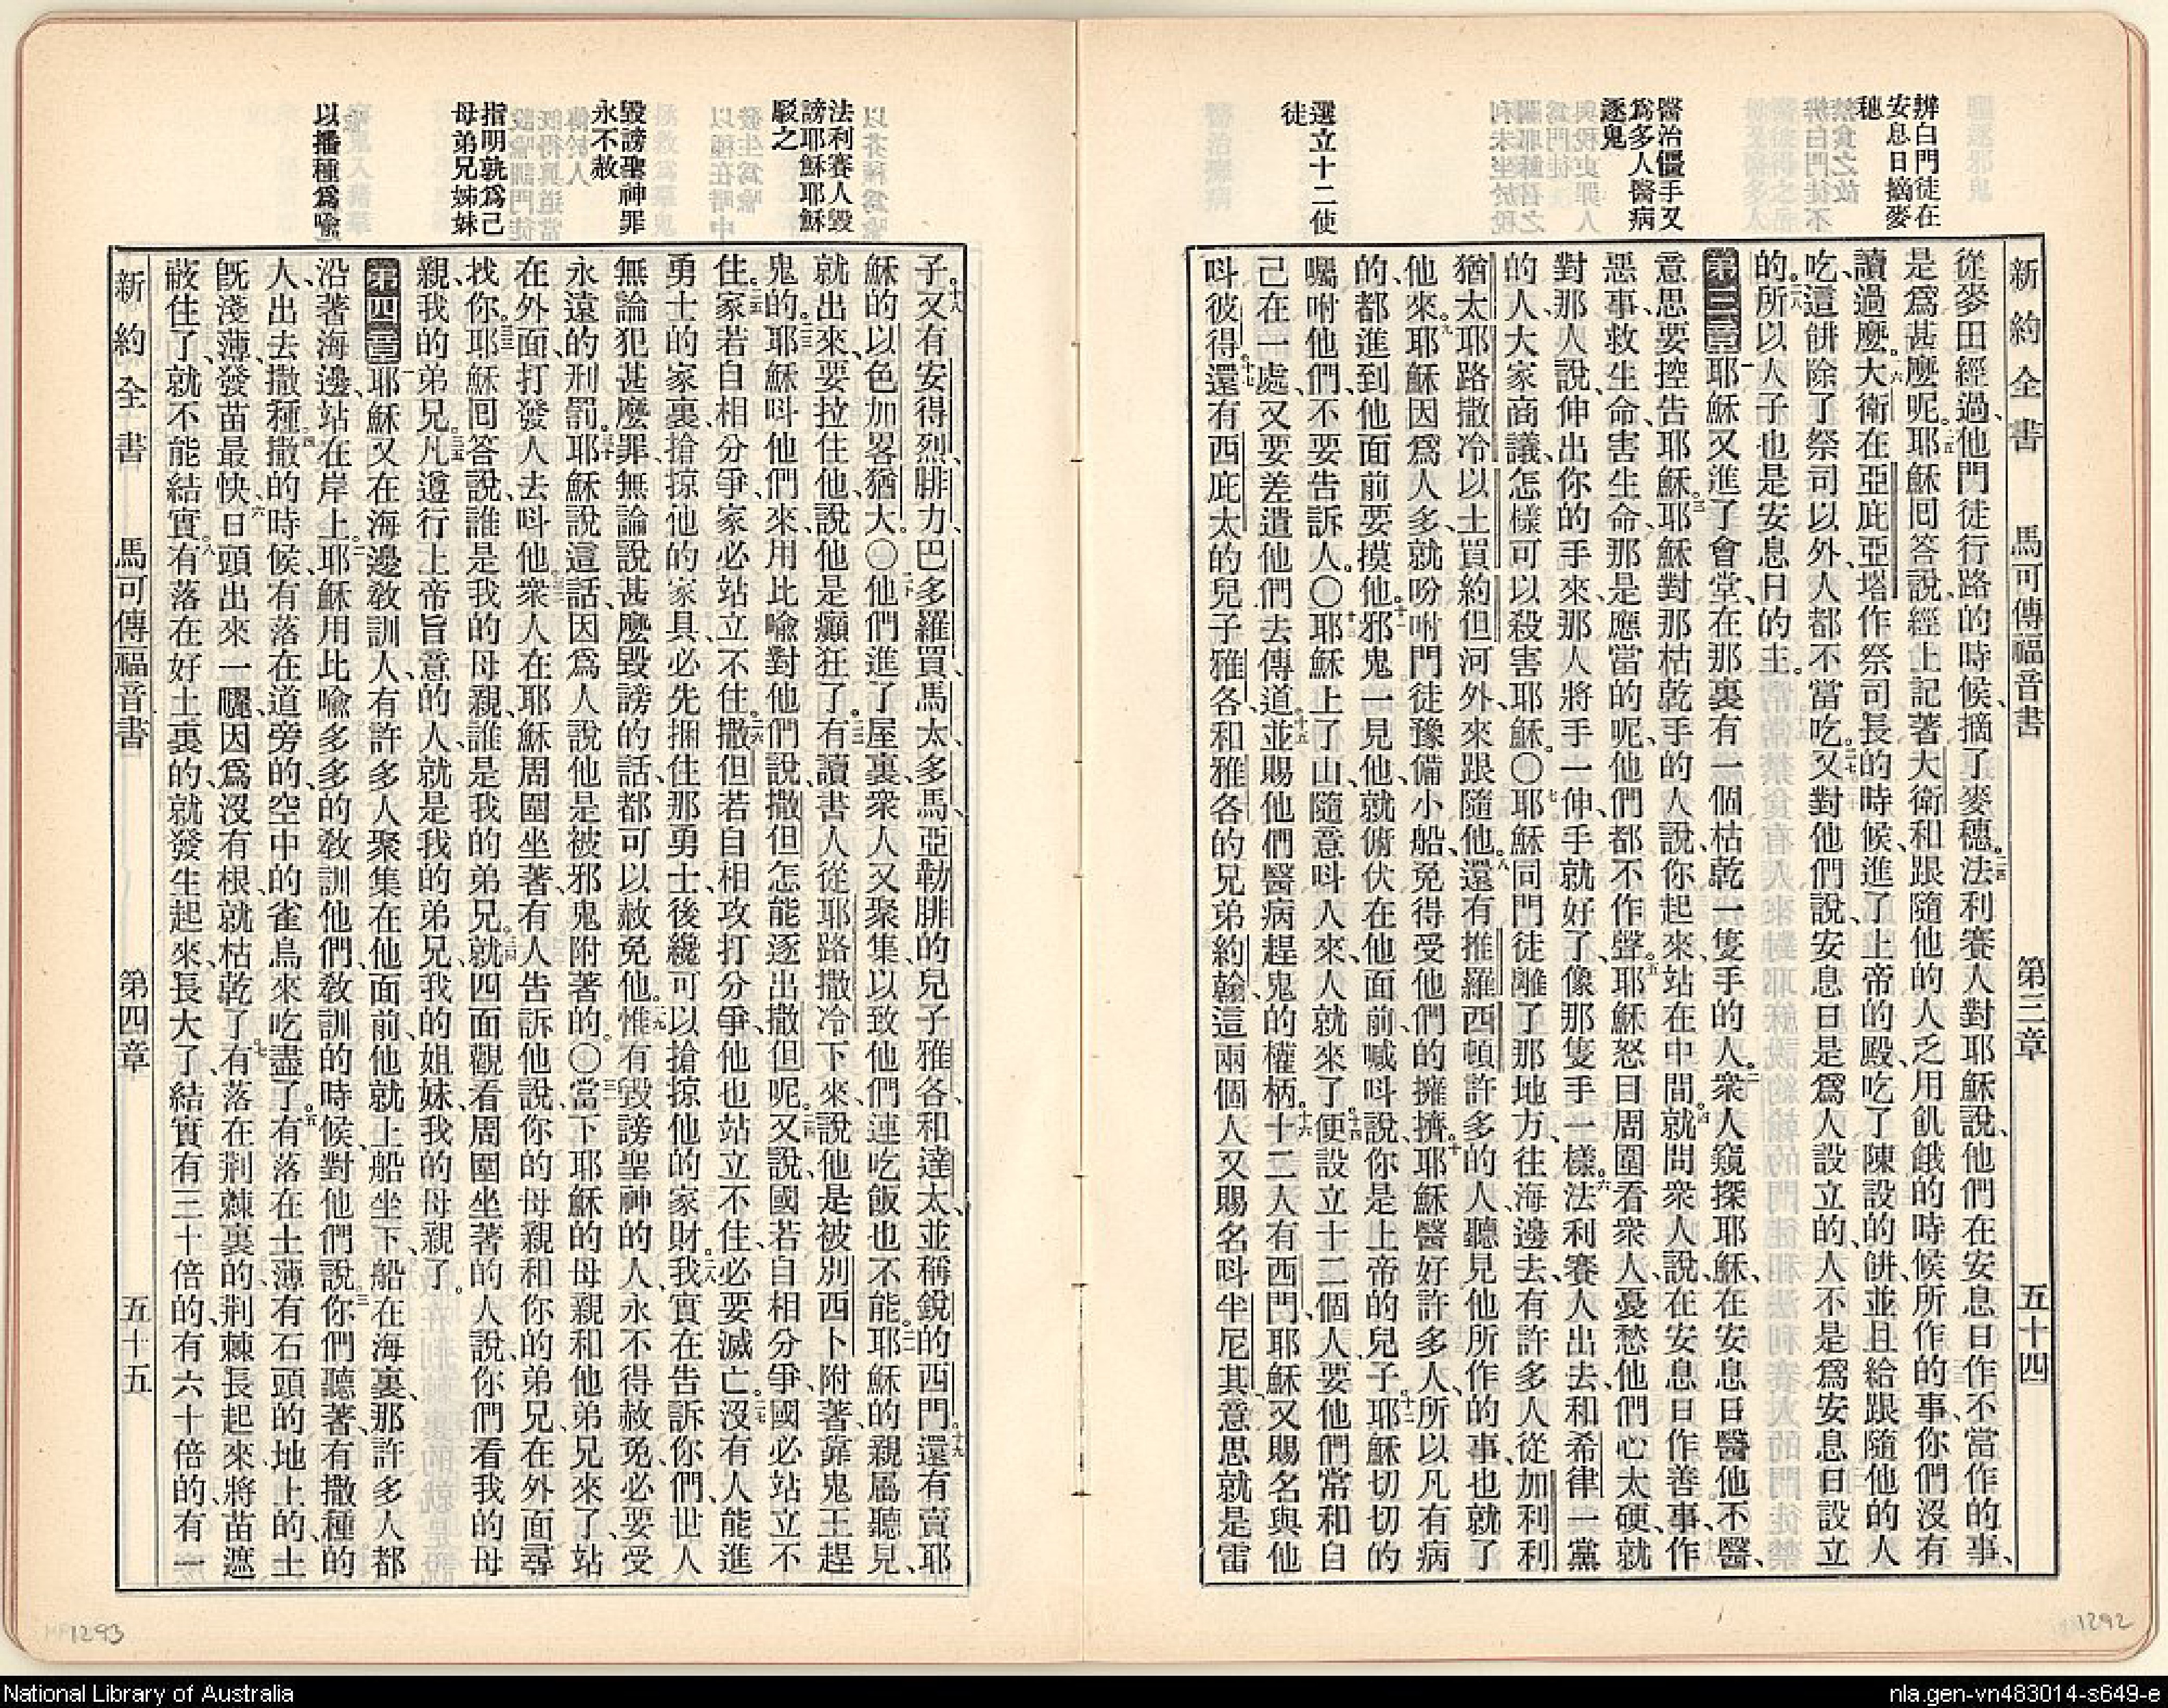 辨白門徒在
安息日摘麥
穗
醫治僵手又
爲多人醫病
逐鬼
選立十二使
徒
新約全書 馬可傳福音書 第三章 五十四
從麥田經過、他門徒行路的時候、摘了麥穗。二四法利賽人對耶穌說、他們在安息日作不當作的事、
是爲甚麼呢。二五耶穌囘答說、經上記著大衛和跟隨他的人乏用飢餓的時候所作的事、你們沒有
讀過麼。二六大衛在亞庇亞塔作祭司長的時候、進了上帝的殿、吃了陳設的餅、並且給跟隨他的人
吃、這餅除了祭司以外、人都不當吃。二七又對他們說、安息日是爲人設立的、人不是爲安息日設立
的。二八所以人子也是安息日的主。
第三章 一耶穌又進了會堂、在那裏有一個枯乾一隻手的人。二衆人窺探耶穌、在安息日醫他不醫、
意思要控告耶穌。三耶穌對那枯乾手的人說、你起來、站在中間。四就問衆人說、在安息日作善事、作
惡事、救生命、害生命、那是應當的呢、他們都不作聲。五耶穌怒目周圍看衆人、憂愁他們心太硬、就
對那人說、伸出你的手來、那人將手一伸、手就好了、像那隻手一樣。六法利賽人出去、和希律一黨
的人大家商議、怎樣可以殺害耶穌。〇七耶穌同門徒離了那地方、往海邊去、有許多人從加利利
猶太耶路撒冷以土買約但河外來跟隨他。八還有推羅西頓許多的人、聽見他所作的事、也就了
他來。九耶穌因爲人多、就吩咐門徒豫備小船、免得受他們的擁擠。十耶穌醫好許多人、所以凡有病
的、都進到他面前要摸他。十一邪鬼一見他、就俯伏在他面前、喊呌說、你是上帝的兒子。十二耶穌切切的
囑咐他們、不要告訴人。〇十三耶穌上了山、隨意呌人來、人就來了。十四便設立十二個人、要他們常和自
己在一處、又要差遣他們去傳道。十五並賜他們醫病趕鬼的權柄。十六十二人有西門、耶穌又賜名與他
呌彼得。十七還有西庇太的兒子雅各、和雅各的兄弟約翰、這兩個人又賜名呌半尼其、意思就是雷
法利賽人毀
謗耶穌耶穌
駁之
毀謗聖神罪
永不赦
指明孰爲己
母弟兄姊妹
以播種爲喩
子。十八又有安得烈、腓力、巴多羅買、馬太、多馬、亞勒腓的兒子雅各、和達太、並稱銳的西門。十九還有賣耶
穌的以色加畧猶大。〇二十他們進了屋裏、衆人又聚集、以致他們連吃飯也不能。二一耶穌的親屬聽見、
就出來、要拉住他、說他是癲狂了。二二有讀書人從耶路撒冷下來、說他是被別西卜附著、靠鬼王趕
鬼的。二三耶穌呌他們來、用比喩對他們說、撒但怎能逐出撒但呢。二四又說、國若自相分爭、國必站立不
住。二五家若自相分爭、家必站立不住。二六撒但若自相攻打分爭、他也站立不住、必要滅亡。二七沒有人能進
勇士的家裏、搶掠他的家具、必先捆住那勇士、後纔可以搶掠他的家財。二八我實在告訴你們、世人
無論犯甚麼罪、無論說甚麼毀謗的話、都可以赦免他。二九惟有毀謗聖神的人、永不得赦免、必要受
永遠的刑罰。三十耶穌說這話、因爲人說他是被邪鬼附著的。〇三一當下耶穌的母親和他弟兄來了、站
在外面、打發人去呌他。三二衆人在耶穌周圍坐著、有人告訴他說、你的母親和你的弟兄、在外面尋
找你。三三耶穌囘答說、誰是我的母親、誰是我的弟兄。三四就四面觀看周圍坐著的人說、你們看我的母
親、我的弟兄。三五凡遵行上帝旨意的人、就是我的弟兄、我的姐妹、我的母親了。
第四章 一耶穌又在海邊敎訓人、有許多人聚集在他面前、他就上船坐下、船在海裏、那許多人都
沿著海邊、站在岸上。二耶穌用比喩多多的敎訓他們、敎訓的時候、對他們說。三你們聽著、有撒種的
人、出去撒種。四撒的時候、有落在道旁的、空中的雀鳥來吃盡了。五有落在土薄有石頭的地上的、土
旣淺薄、發苗最快。六日頭出來一曬、因爲沒有根、就枯乾了。七有落在荆棘裏的、荆棘長起來、將苗遮
蔽住了、就不能結實。八有落在好土裏的、就發生起來、長大了、結實有三十倍的、有六十倍的、有一
新約全書 馬可傳福音書 第四章 五十五
1293
1292
National Library of Australia
nla.gen-vn483014-s649-e